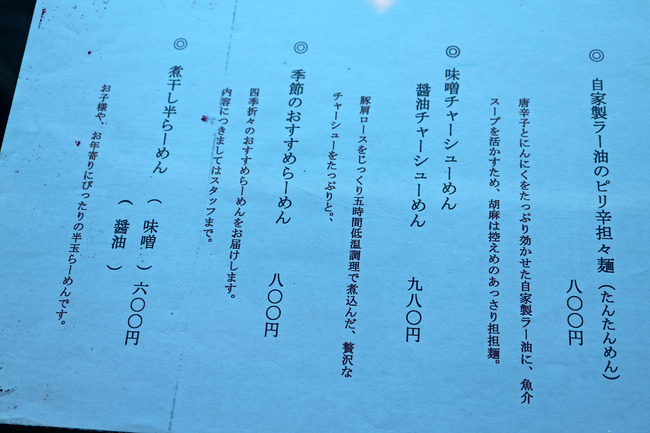 ◎ 自家製ラー油のピリ辛担々麺（たんたんめん）
八〇〇円
唐辛子とにんにくをたっぷり効かせた自家製ラー油に、魚介
スープを活かすため、胡麻は控えめのあっさり担担麺。
◎ 味噌チャーシューめん
醤油チャーシューめん 九八〇円
豚肩ロースをじっくり五時間低温調理で煮込んだ、贅沢な
チャーシューをたっぷりと。、
◎ 季節のおすすめらーめん 八〇〇円
四季折々のおすすめらーめんをお届けします。
内容につきましてはスタッフまで。
◎ 煮干し半らーめん （ 味噌 ） 六〇〇円
（ 醤油 ）
お子様や、お年寄りにぴったりの半玉らーめんです。